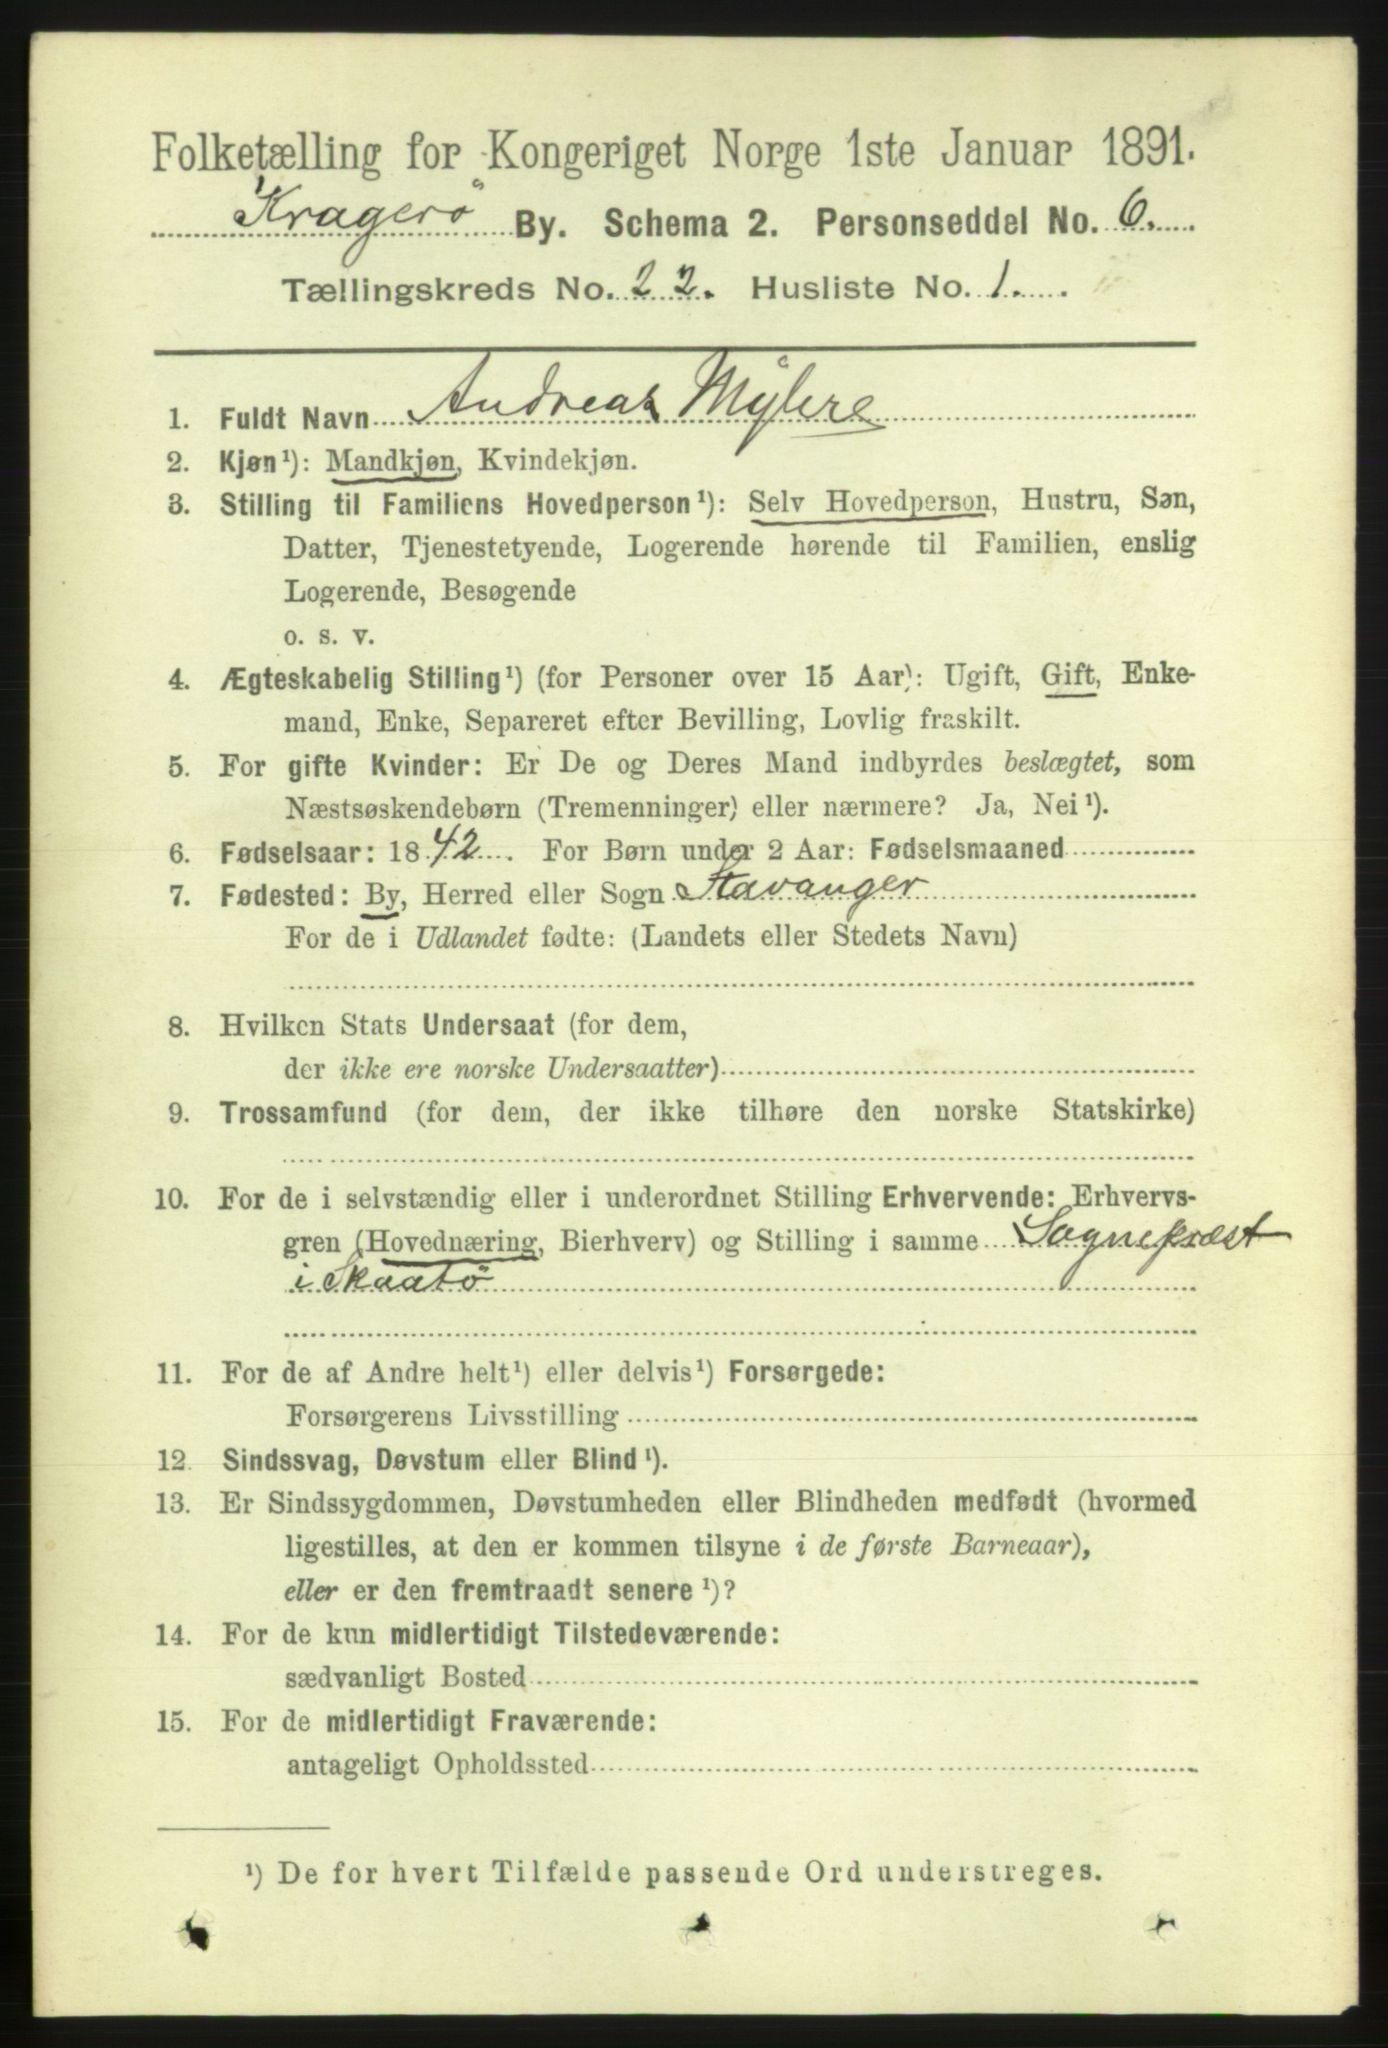 Folketælling for Kongeriget Norge 1ste Januar 1891.
Kragerö By. Schema 2. Personseddel No. 6.
Tællingskreds No. 22. Husliste No. 1.
1. Fuldt Navn Andreas Myhre
2. Kjøn¹): Mandkjøn, Kvindekjøn.
3. Stilling til Familiens Hovedperson¹): Selv Hovedperson, Hustru, Søn,
Datter, Tjenestetyende, Logerende hørende til Familien, enslig
Logerende, Besøgende
o. s. v.
4. Ægteskabelig Stilling¹) (for Personer over 15 Aar): Ugift, Gift, Enke-
mand, Enke, Separeret efter Bevilling, Lovlig fraskilt.
5. For gifte Kvinder: Er De og Deres Mand indbyrdes beslægtet, som
Næstsøskendebørn (Tremenninger) eller nærmere? Ja, Nei¹).
6. Fødselsaar: 1842. For Børn under 2 Aar: Fødselsmaaned
7. Fødested: By, Herred eller Sogn Stavanger
For de i Udlandet fødte: (Landets eller Stedets Navn)
8. Hvilken Stats Undersaat (for dem,
der ikke ere norske Undersaatter)
9. Trossamfund (for dem, der ikke tilhøre den norske Statskirke)
10. For de i selvstændig eller i underordnet Stilling Erhvervende: Erhvervs-
gren (Hovednæring, Bierhverv) og Stilling i samme Sognepræst
i Skaatö
11. For de af Andre helt¹) eller delvis¹) Forsørgede:
Forsørgerens Livsstilling
12. Sindssvag, Døvstum eller Blind¹).
13. Er Sindssygdommen, Døvstumheden eller Blindheden medfødt (hvormed
ligestilles, at den er kommen tilsyne i de første Barneaar),
eller er den fremtraadt senere¹)?
14. For de kun midlertidigt Tilstedeværende:
sædvanligt Bosted
15. For de midlertidigt Fraværende:
antageligt Opholdssted
¹) De for hvert Tilfælde passende Ord understreges.